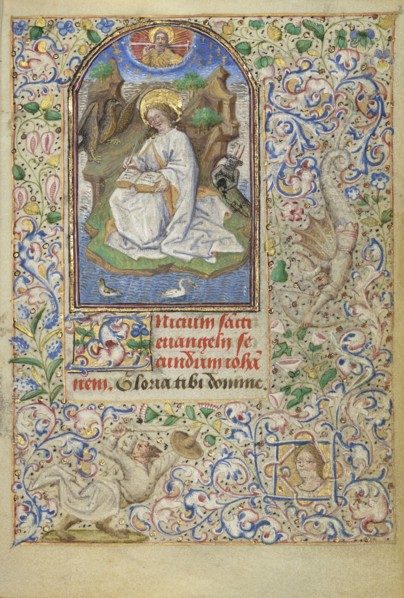 Inicium sacti
euangelij se
cundum iohā
nem. Gloria tibi domine.